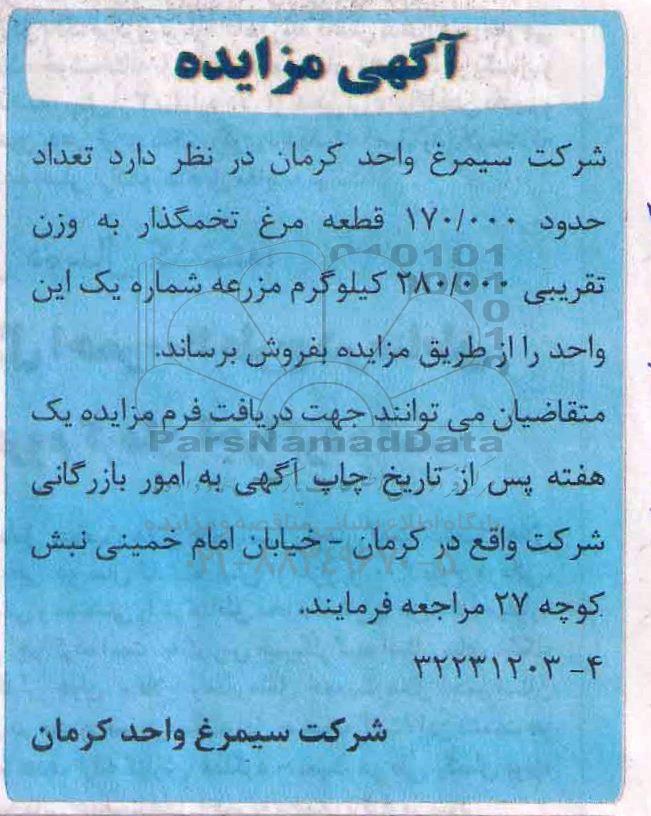 آگهی مزایده
شرکت سیمرغ واحد کرمان در نظر دارد تعداد
حدود ۱۷۰/۰۰۰ قطعه مرغ تخمگذار به وزن
تقریبی ۲۸۰/۰۰۰ کیلوگرم مزرعه شماره یک این
واحد را از طریق مزایده بفروش برساند.
متقاضیان می توانند جهت دریافت فرم مزایده یک
هفته پس از تاریخ چاپ آگهی به امور بازرگانی
شرکت واقع در کرمان - خیابان امام خمینی نبش
کوچه ۲۷ مراجعه فرمایند.
۴- ۳۲۲۳۱۲۰۳
شرکت سیمرغ واحد کرمان
ParsNamadData